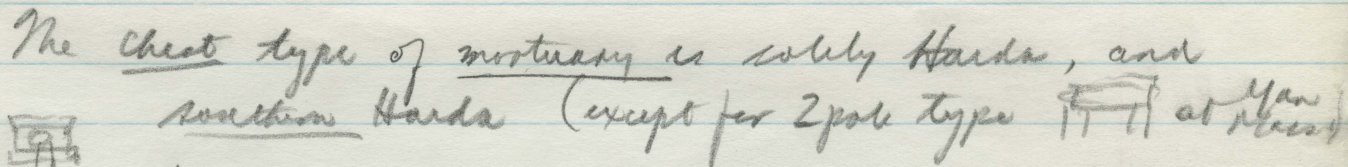 The chest type of mortuary is solely Haida, and
southern Haida (except for 2 pole type at Yan